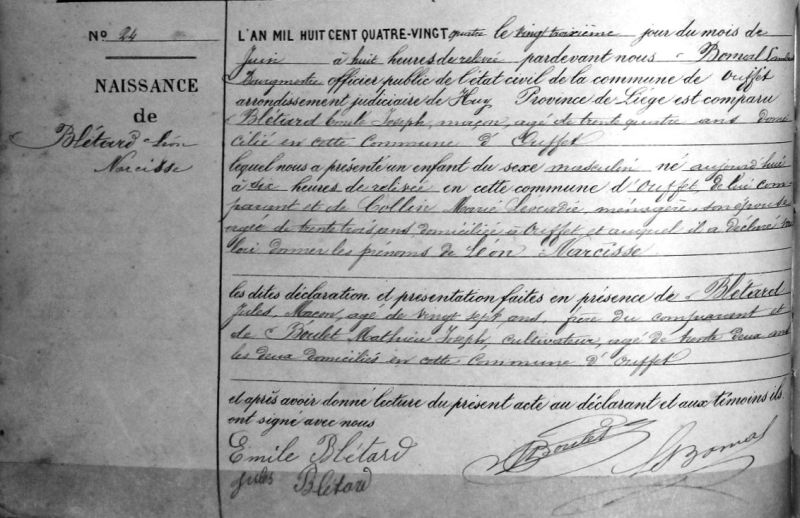 N° 24
NAISSANCE
de
Blétard Léon
Narcisse
L'AN MIL HUIT CENT QUATRE-VINGT quatre le vingt troisième jour du mois de
Juin à huit heures de relevée pardevant nous Bomal
Bourgmestre officier public de l'état civil de la commune de Ouffet
arrondissement judiciaire de Huy Province de Liége est comparu
Blétard Emile Joseph, maçon, agé de trente quatre ans domi
cilié en cette commune d'Ouffet
lequel nous a présenté un enfant du sexe masculin né aujourd'hui
à six heures de relevée en cette commune d'Ouffet, de lui com
parant et de Collin Marie Léocadie, ménagère, son épouse
agée de trente trois ans domiciliée à Ouffet et auquel il a déclaré vou
loir donner les prénoms de Léon Narcisse
les dites déclaration et présentation faites en présence de Blétard
Jules, Maçon, agé de vingt sept ans, frère du comparant et
de Boulet Mathieu Joseph, cultivateur, agé de trente deux ans
les deux domiciliés en cette commune d'Ouffet
et après avoir donné lecture du présent acte au déclarant et aux témoins ils
ont signé avec nous
Emile Blétard
Jules Blétard
Boulet
Bomal